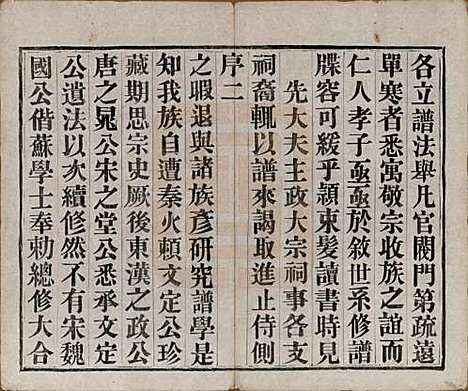 各立譜法舉凡官閥門第疏遠
單寒者悉寓敬宗收族之誼而
仁人孝子亟亟於敘世系修譜
牒容可緩乎頴束髮讀書時見
先大夫主政大宗祠事各支
祠裔輒以譜來謁取進止侍側
序二
之暇退與諸族彥研究譜學是
知我族自遭秦火頼文定公珍
藏期思宗史厥後東漢之政公
唐之晁公宋之堂公悉承文定
公遺法以次續修然不有宋魏
國公偕蘇學士奉勅總修大合